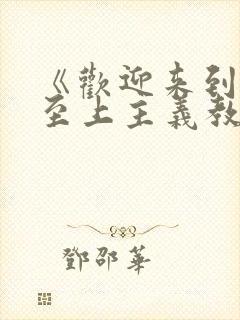 《歡迎来到
至上主義教
鄧邵華